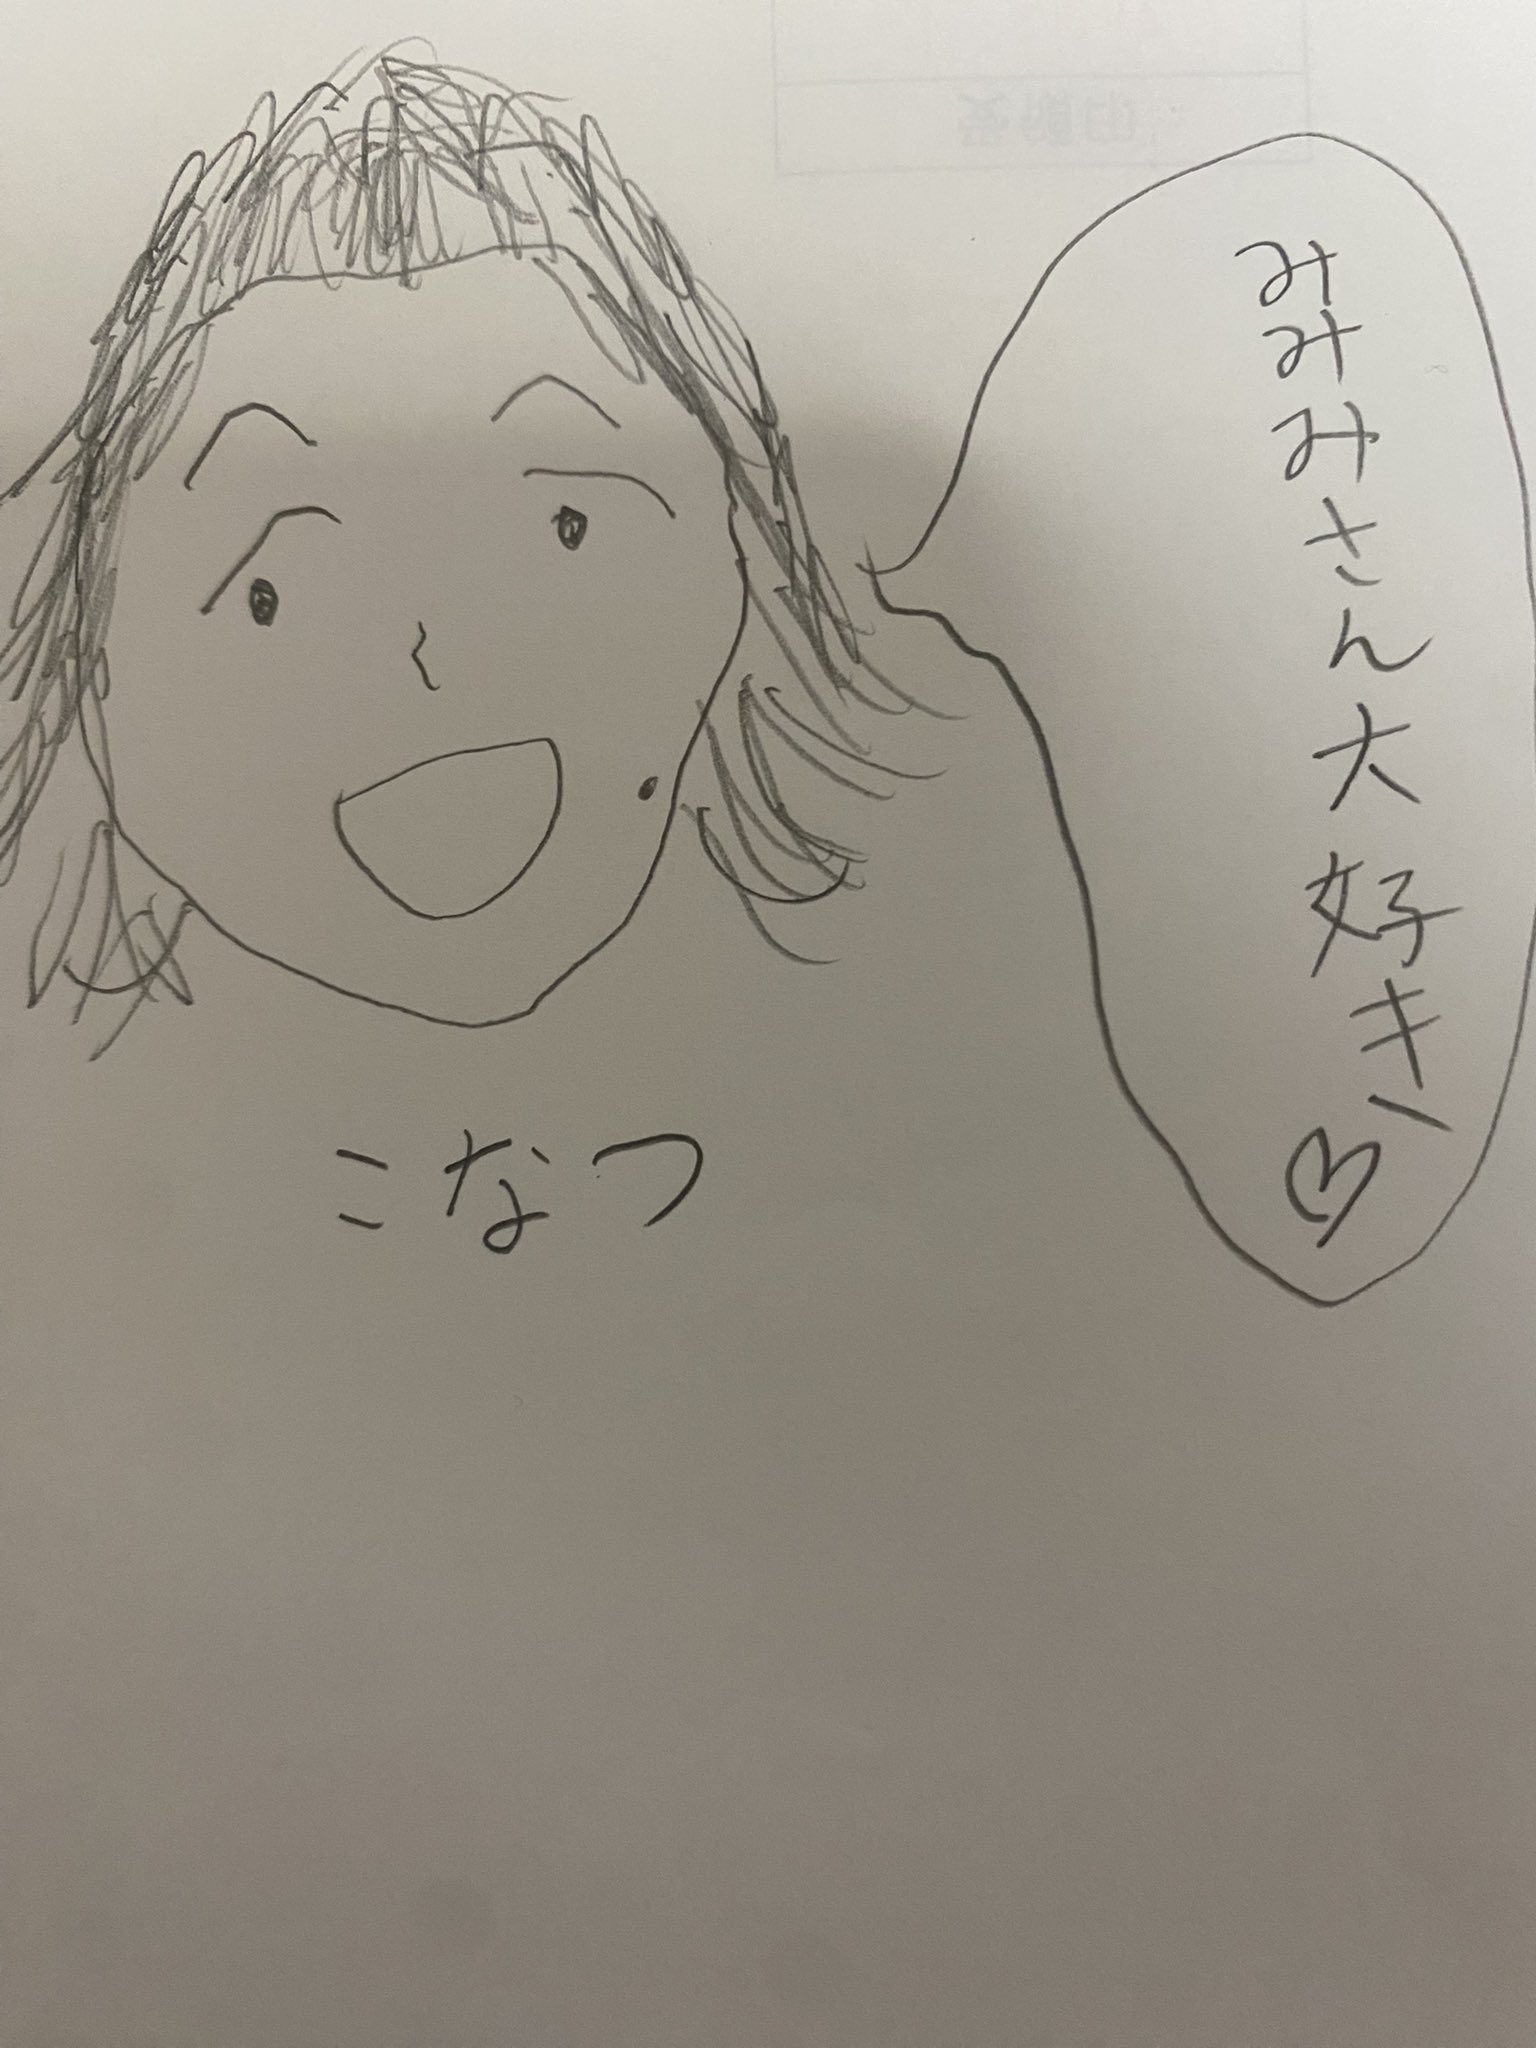 みみみさん大好き♡
こなつ